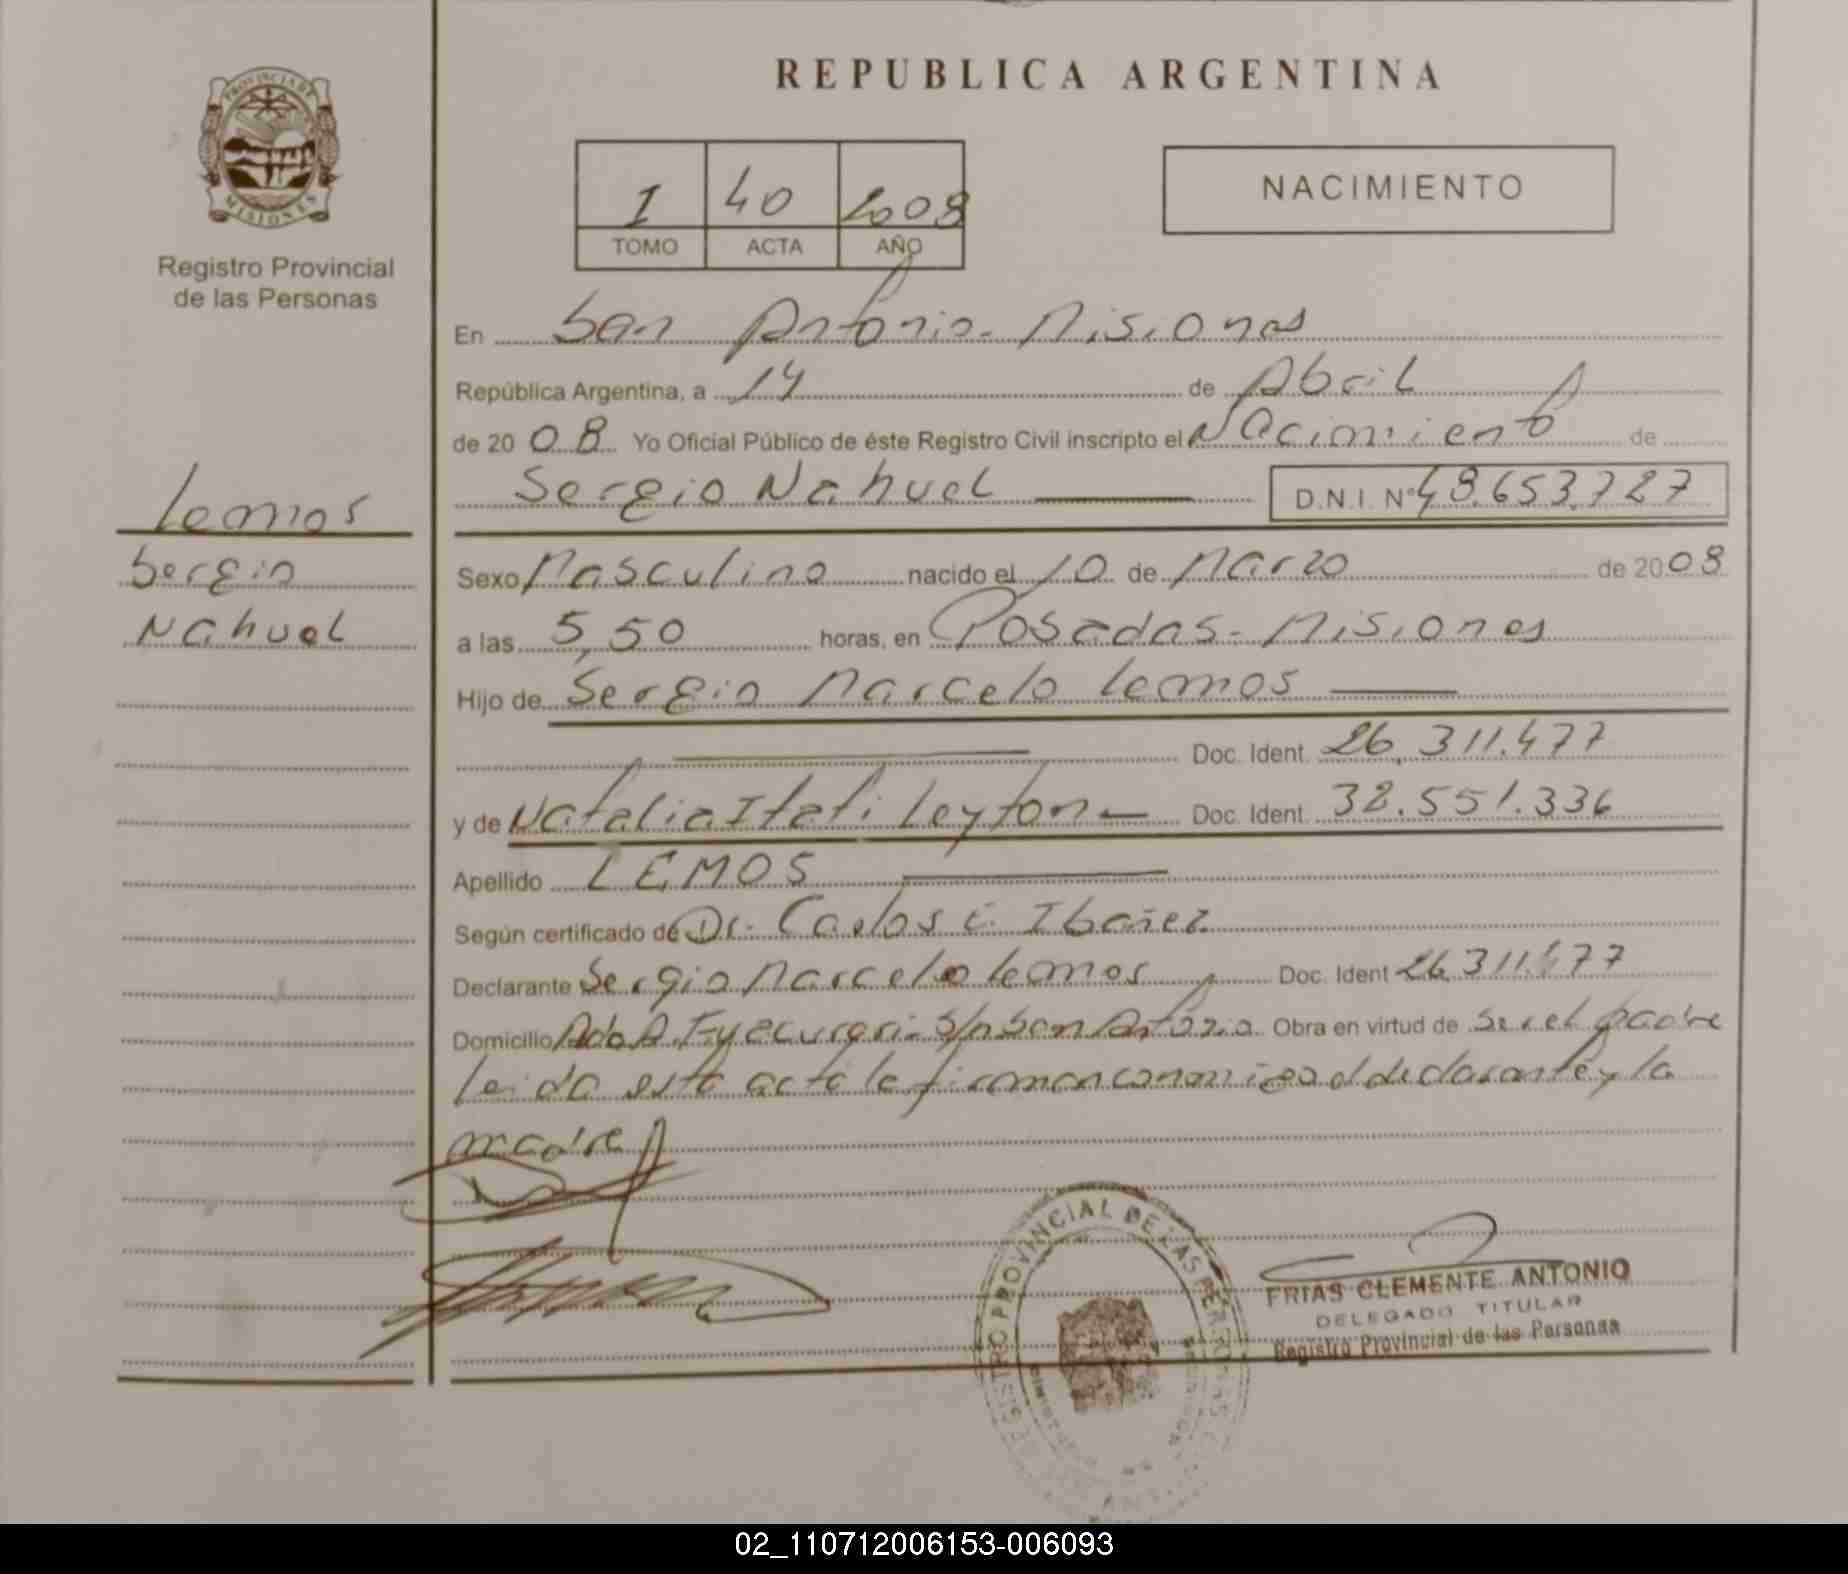 PROVINCIA DE
MISIONES
Registro Provincial
de las Personas
Lemos
Sergio
Nahuel
REPUBLICA ARGENTINA
I 40 2008
TOMO ACTA AÑO
NACIMIENTO
En San Antonio - Misiones
República Argentina, a 14 de Abril
de 2008 Yo Oficial Público de éste Registro Civil inscripto el Nacimiento de
Sergio Nahuel D.N.I. Nº 48.653.727
Sexo Masculino nacido el 10 de Marzo de 2008
a las 5,50 horas, en Posadas - Misiones
Hijo de Sergio Marcelo Lemos
Doc. Ident. 26.311.477
y de Natalia Itati Leyton Doc. Ident. 38.551.336
Apellido LEMOS
Según certificado de Dr. Carlos E. Ibañez
Declarante Sergio Marcelo Lemos Doc. Ident 26.311.477
Domicilio S/n San Antonio. Obra en virtud de ser el padre
leida esta acta la firman conmigo el declarante y la
madre
REGISTRO PROVINCIAL DE LAS PERSONAS
FRIAS CLEMENTE ANTONIO
DELEGADO TITULAR
Registro Provincial de las Personas
02_110712006153-006093